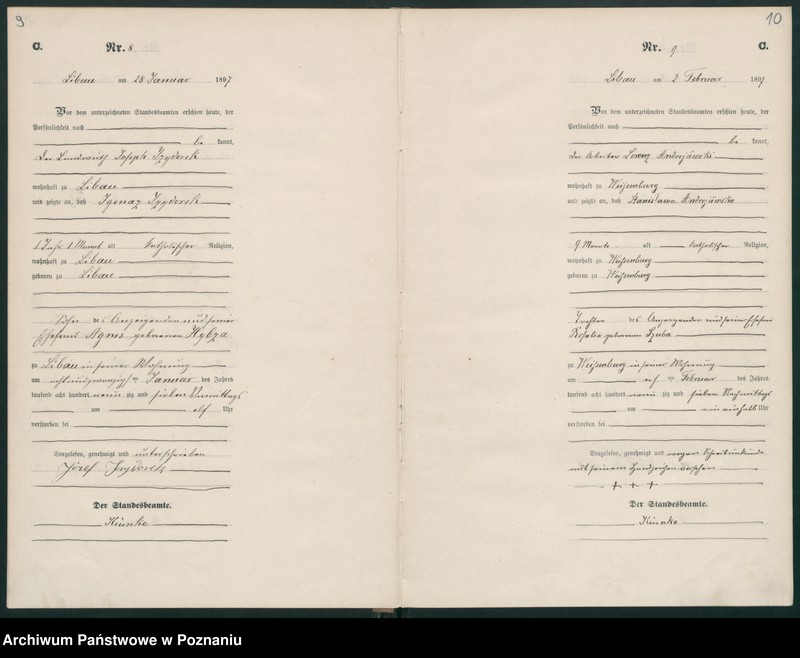 9
C. Nr. 8
Libau am 28 Januar 1897
Vor dem unterzeichneten Standesbeamten erschien heute, der
Persönlichkeit nach
be kannt,
der Landwirth Joseph Izydorek
wohnhaft zu Libau
und zeigte an, daß Ignaz Izydorek
1 Jahr 1 Monat alt katholischer Religion,
wohnhaft zu Libau
geboren zu Libau
Sohn des Anzeigenden und seiner
Ehefrau Agnes geborenen Hybza
zu Libau in seiner Wohnung
am acht und zwanzigsten Januar des Jahres
tausend acht hundert neun zig und sieben Vormittags
um elf Uhr
verstorben sei
Vorgelesen, genehmigt und unterschrieben
Józef Izydorek
Der Standesbeamte.
10
Nr. 9 C.
Libau am 2 Februar 1897
Vor dem unterzeichneten Standesbeamten erschien heute, der
Persönlichkeit nach
be kannt,
der Arbeiter Lorenz
wohnhaft zu Weißenburg
und zeigte an, daß Stanislawa
9 Monate alt katholischer Religion,
wohnhaft zu Weißenburg
geboren zu Weißenburg
Tochter des Anzeigenden und seiner Ehefrau
Rosalia geborenen
zu Weißenburg in seiner Wohnung
am Februar des Jahres
tausend acht hundert neun zig und sieben Nachmittags
um ein einhalb Uhr
verstorben sei
Vorgelesen, genehmigt und wegen Schreibunkunde
mit seinem Handzeichen versehen
+ + +
Der Standesbeamte.
Archiwum Państwowe w Poznaniu